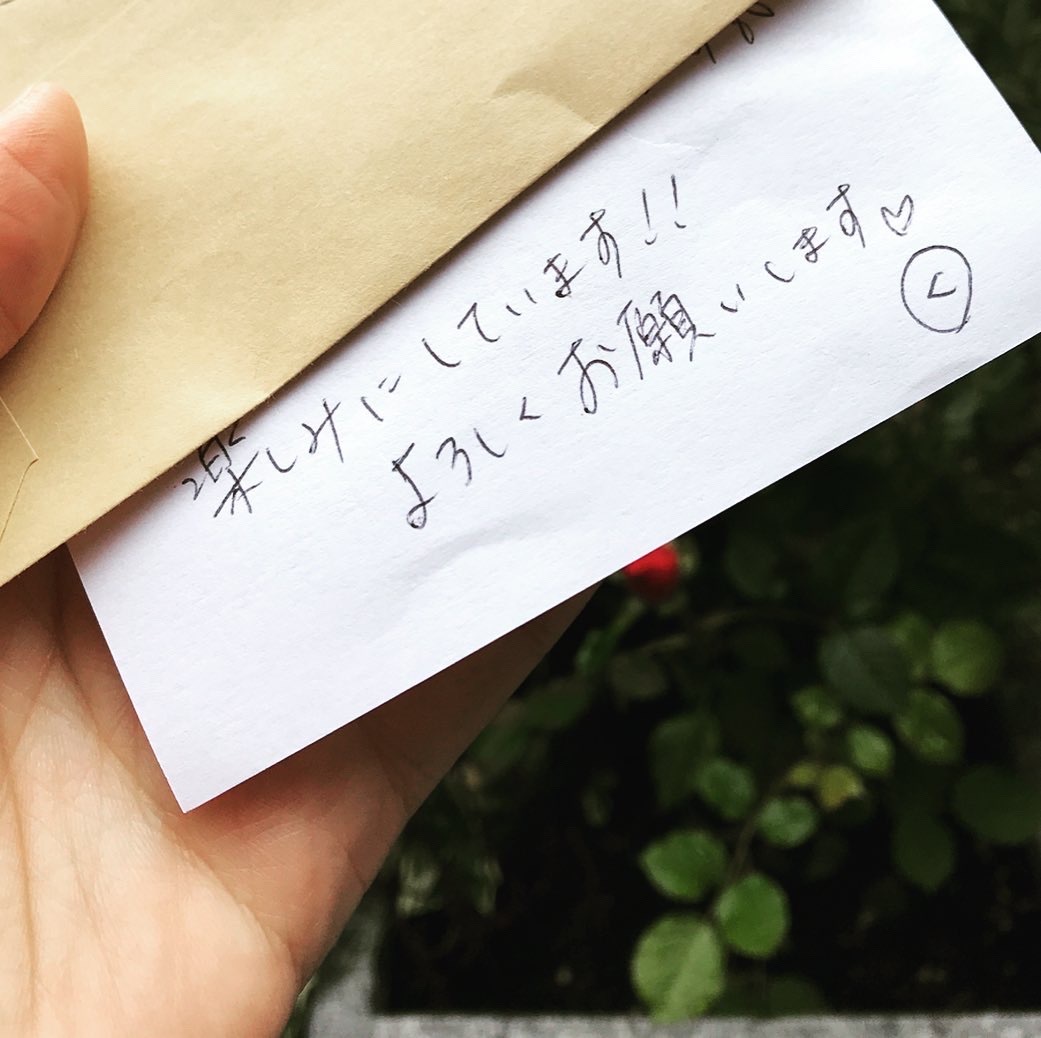 楽しみにしています!!
よろしくお願いします♡
く